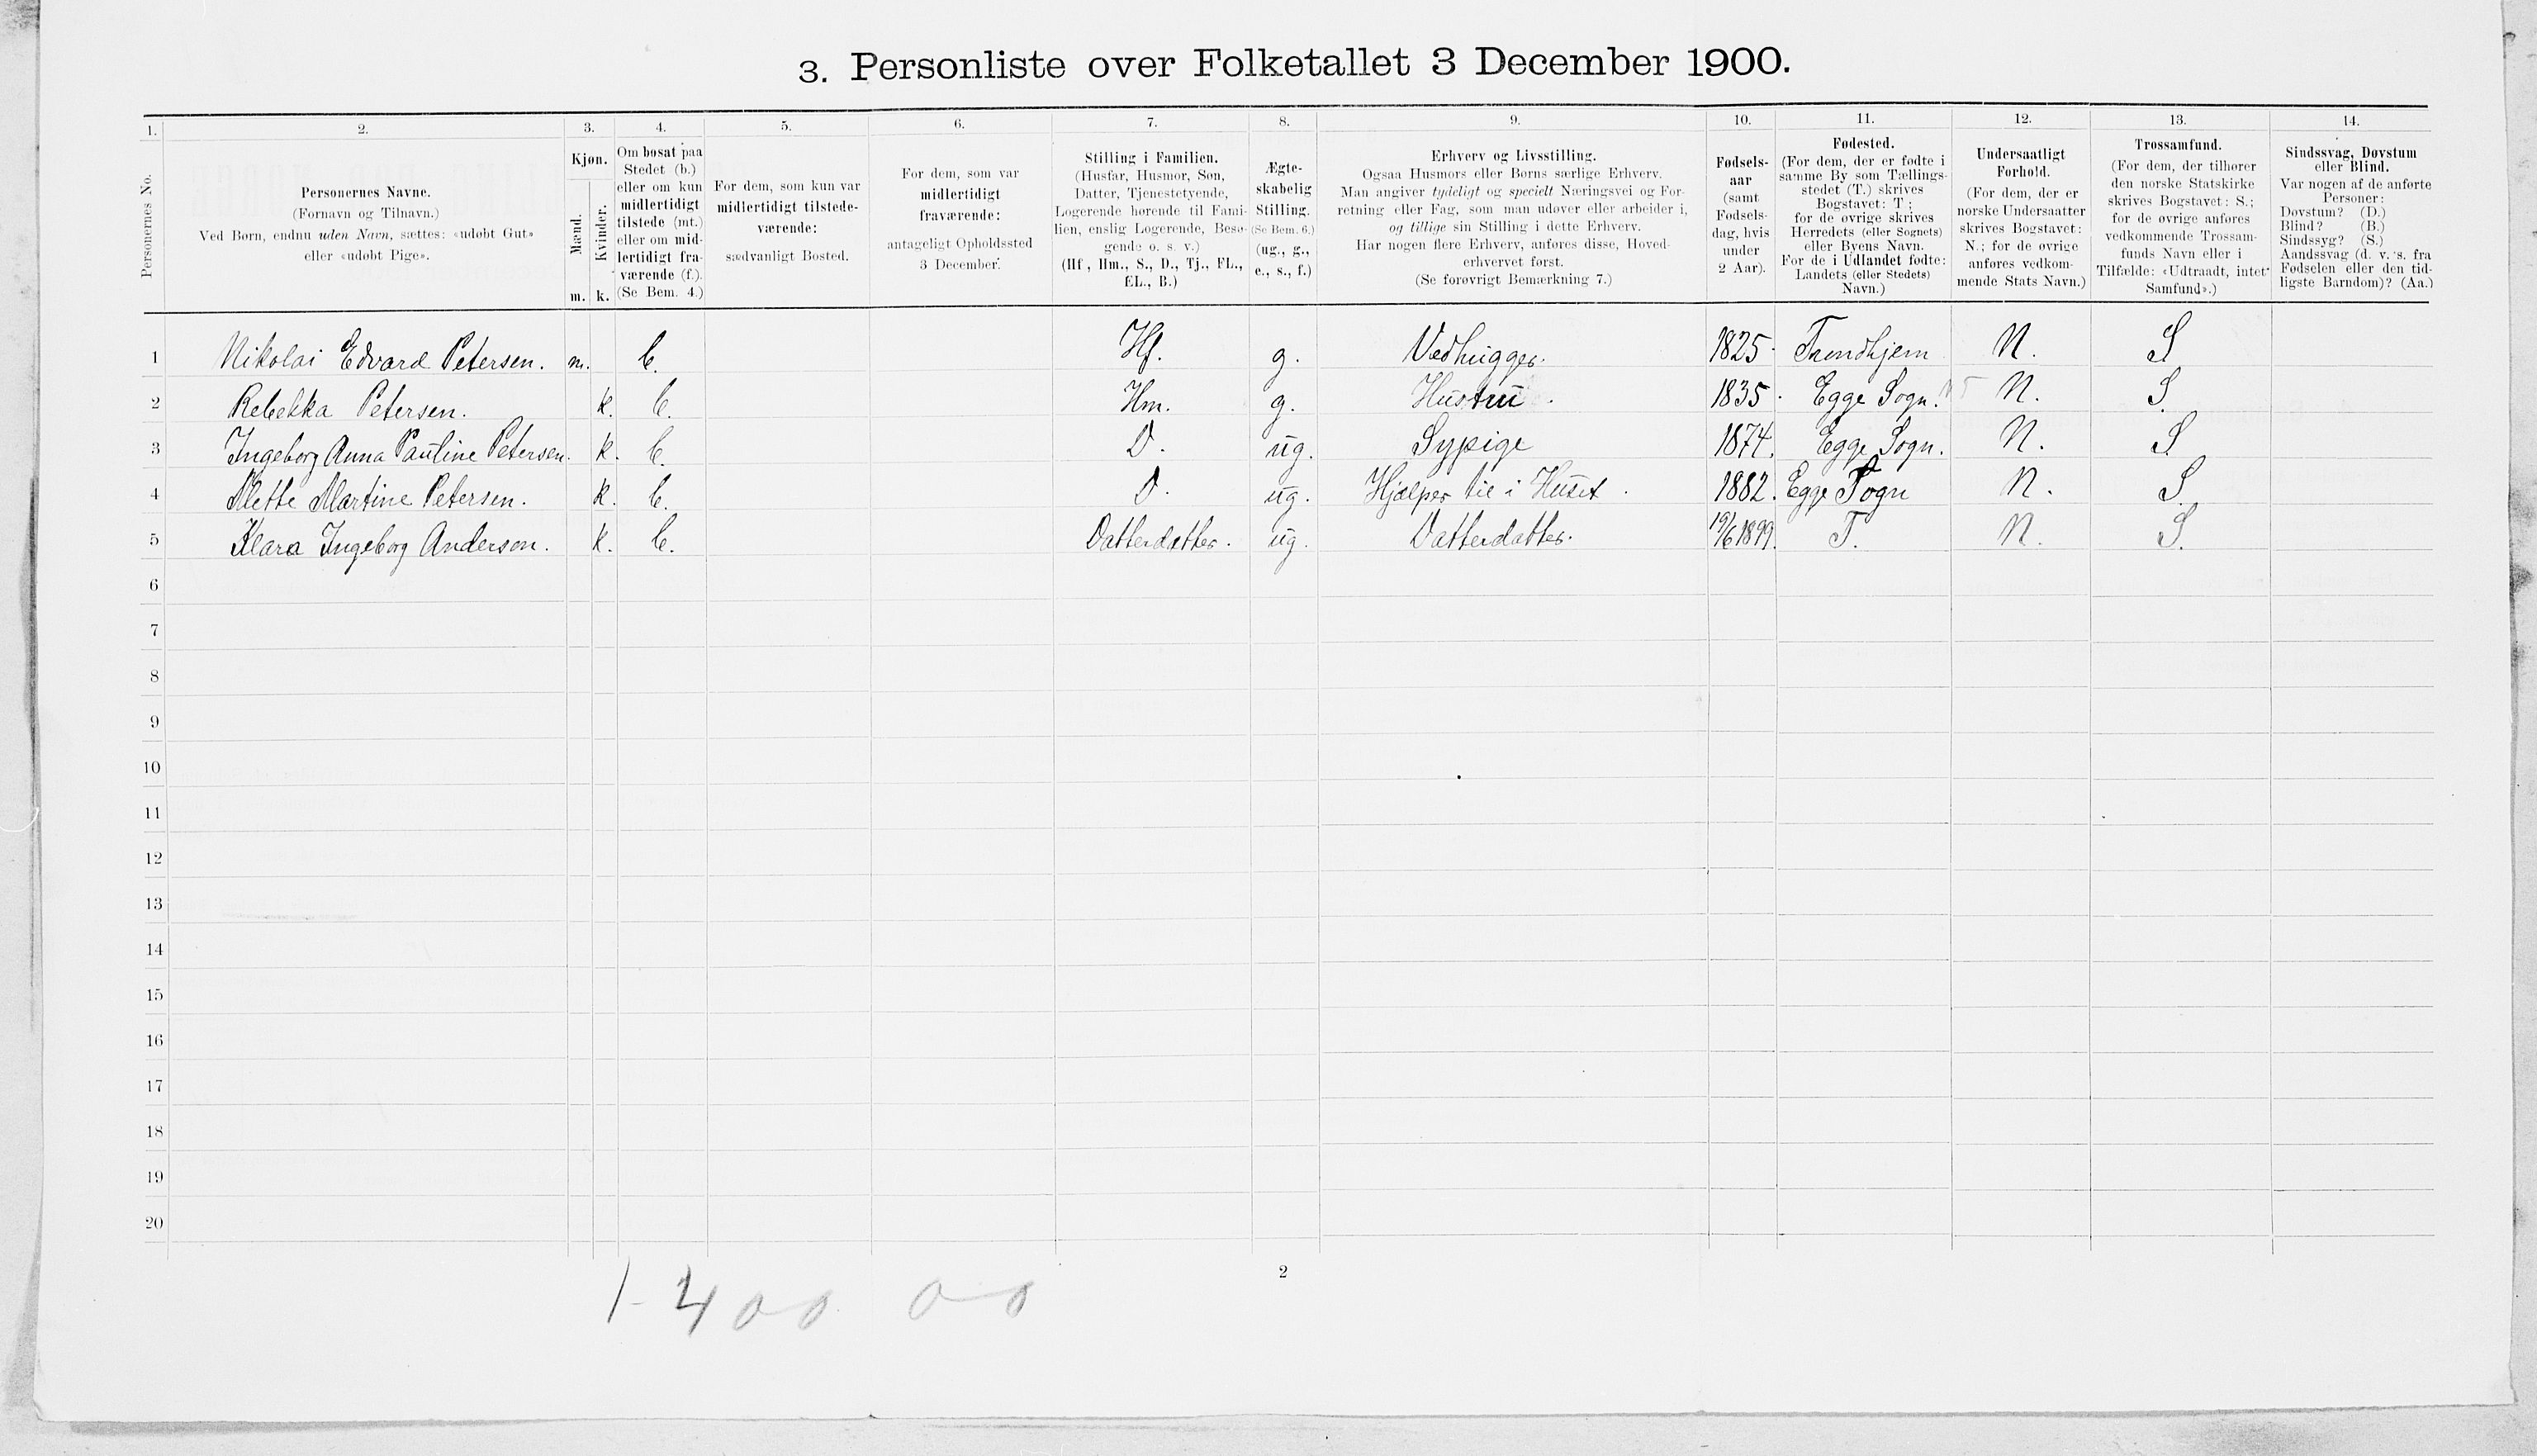 3. Personliste over Folketallet 3 December 1900.
1. 2. 3. 4. 5. 6. 7. 8. 9. 10. 11. 12. 13. 14.
Personernes No.
Personernes Navne.
(Fornavn og Tilnavn.)
Ved Børn, endnu uden Navn, sættes: «udøbt Gut»
eller «udøbt Pige».
Kjøn.
Mænd.
Kvinder.
m. k.
Om bosat paa
Stedet (b.)
eller om kun
midlertidigt
tilstede (mt.)
eller om mid-
lertidigt fra-
værende (f.).
(Se Bem. 4.)
For dem, som kun var
midlertidigt tilstede-
værende:
sædvanligt Bosted.
For dem, som var
midlertidigt
fraværende:
antageligt Opholdssted
3 December.
Stilling i Familien.
(Husfar, Husmor, Søn,
Datter, Tjenestetyende,
Logerende hørende til Fami-
lien, enslig Logerende, Besø-
gende o. s. v.)
(Hf., Hm., S., D., Tj., FL.,
EL., B.)
Ægte-
skabelig
Stilling.
(Se Bem. 6.)
(ug., g.,
e., s., f.)
Erhverv og Livsstilling.
Ogsaa Husmors eller Børns særlige Erhverv.
Man angiver tydeligt og specielt Næringsvei og For-
retning eller Fag, som man udøver eller arbeider i,
og tillige sin Stilling i dette Erhverv.
Har nogen flere Erhverv, anføres disse, Hoved-
erhvervet først.
(Se forøvrigt Bemærkning 7.)
Fødsels-
aar
(samt
Fødsels-
dag, hvis
under
2 Aar).
Fødested.
(For dem, der er fødte i
samme By som Tællings-
stedet (T.) skrives
Bogstavet: T;
for de øvrige skrives
Herredets (eller Sognets)
eller Byens Navn.
For de i Udlandet fødte:
Landets (eller Stedets)
Navn.)
Undersaatligt
Forhold.
(For dem, der er
norske Undersaatter
skrives Bogstavet:
N.; for de øvrige
anføres vedkom-
mende Stats Navn.)
Trossamfund.
(For dem, der tilhører
den norske Statskirke
skrives Bogstavet: S.;
for de øvrige anføres
vedkommende Trossam-
funds Navn eller i
Tilfælde: «Udtraadt, intet
Samfund».)
Sindssvag, Døvstum
eller Blind.
Var nogen af de anførte
Personer:
Døvstum? (D.)
Blind? (B.)
Sindssyg? (S.)
Aandssvag (d. v. s. fra
Fødselen eller den tid-
ligste Barndom)? (Aa.)
1 Nikolai Edvard Petersen. m. b. Hf. g. Vedhugger. 1825 Trondhjem N. S
2 Rebekka Petersen. k. b. Hm. g. Hustru. 1835. Egge Sogn. N. S.
3 Ingeborg Anna Pauline Petersen. k. b. D. ug. Sypige 1874. Egge Sogn. N. S
4 Mette Martine Petersen. k. b. D. ug. Hjælper til i Huset. 1882. Egge Sogn N. S.
5 Klara Ingeborg Andersen. k. b. Datterdatter. ug. Datterdatter. 19/6 1899. T. N. S.
6
7
8
9
10
11
12
13
14
15
16
17
18
19
20
2
1-4 00 00